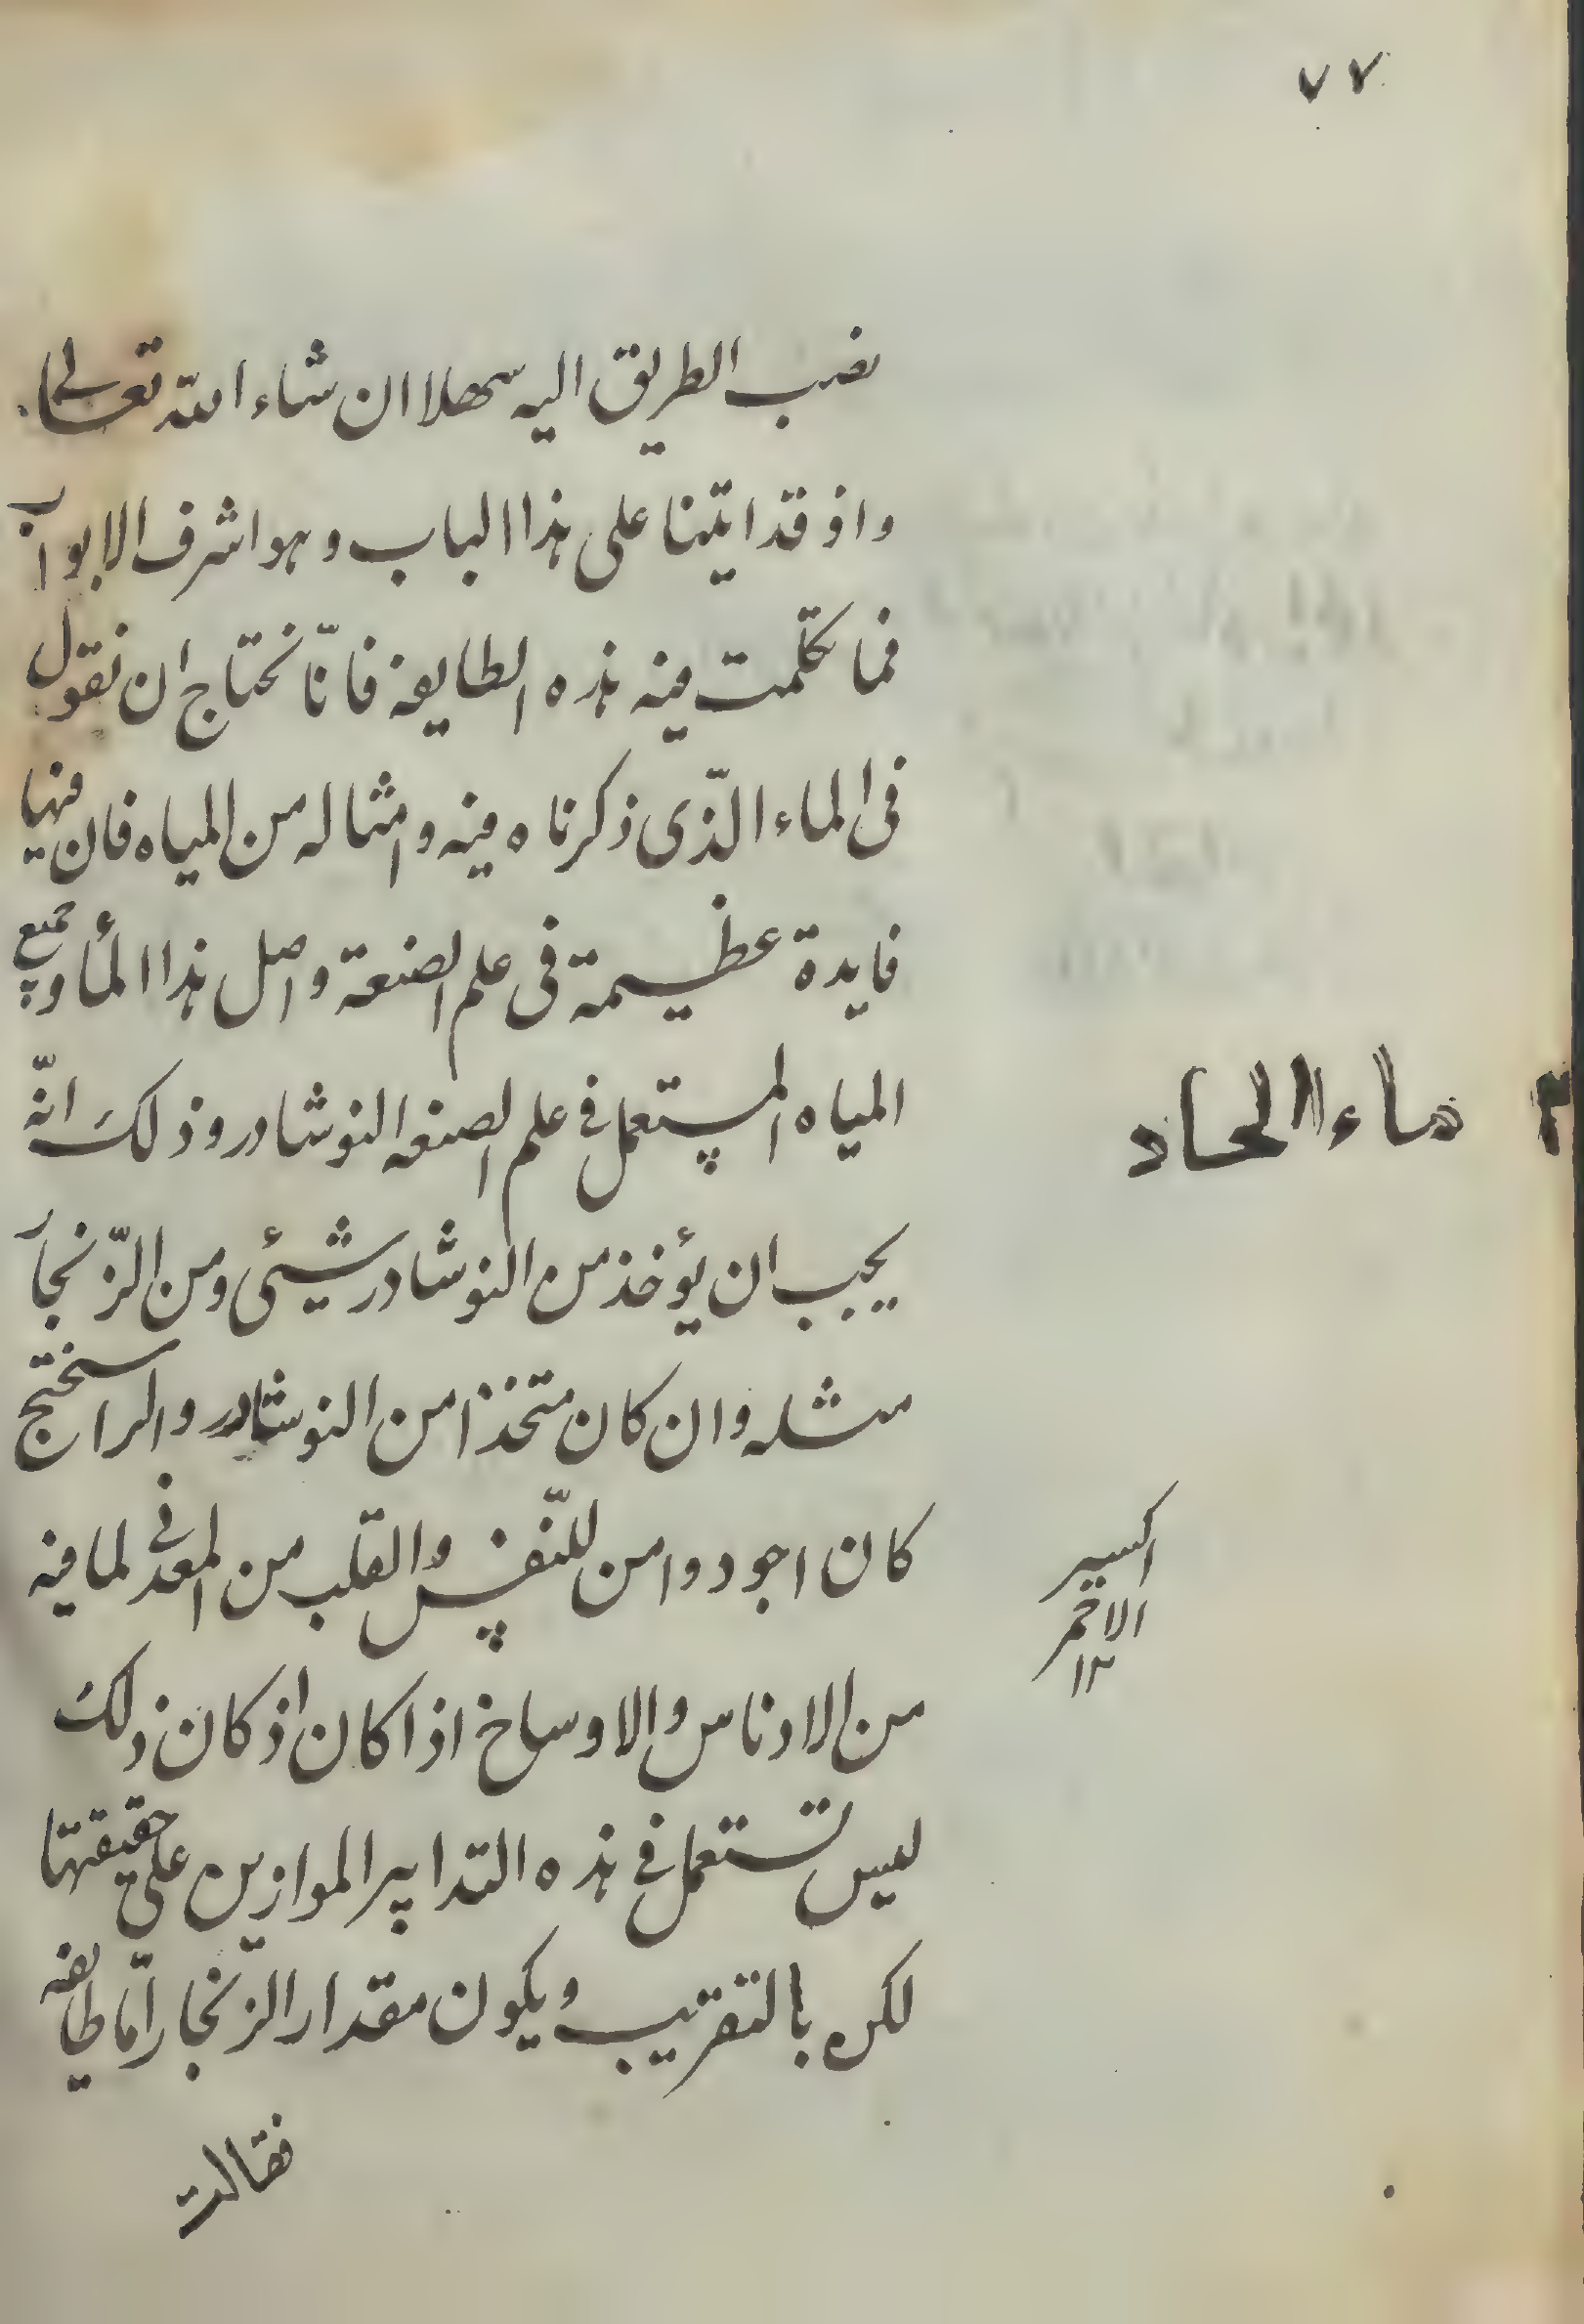 ٧٧
نصب الطريق اليه سهلا ان شاء الله تعالى
واذ قد اتينا على هذا الباب وهو اشرف الابواب
فما تكلمت فيه هذه الطايفة فانّا نحتاج ان نقول
فى الماء الّذى ذكرناه فيه وامثاله من المياه فان فيها
فايدة عظيمة فى علم الصنعة واصل هذا الماء وجميع
المياه المستعمل فى علم الصنعة النوشادر وذلك انّه
ماء الحاد
يجب ان يؤخذ من النوشادر شيئى ومن الزّنجار
مثله وان كان متخذا من النوشادر والراسختج
كان اجود وامن للنّفس والقلب من المعدنى لما فيه
اكسير
الاحمر
١٢
من الادناس والاوساخ اذا كان اذ كان ذلك
ليس تستعمل فى هذه التدابير الموازين على حقيقتها
لكن بالتقريب ويكون مقدار الزّنجار امّا طايفة
فقالت